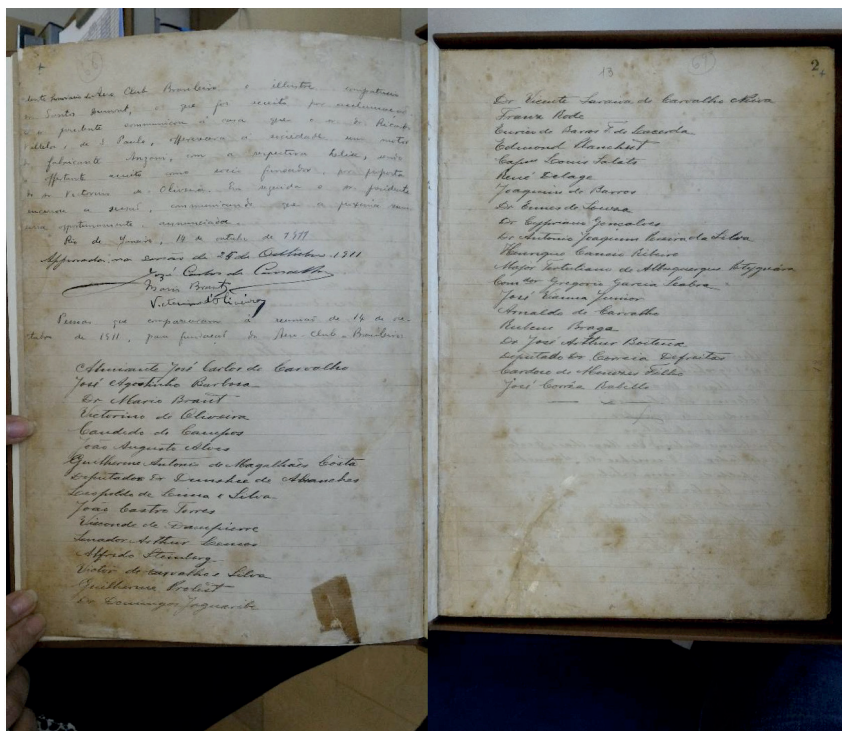 Aero Club Brasileiro o illustre compatriota
Santos Dumont, o que foi acceito por acclamação
o presidente communicou á casa que o sr. de
de S. Paulo, offerecera á sociedade um motor
fabricante Anzani, com a respectiva helice, sendo
offertante acceito como socio fundador, por proposta
do sr. Victorino de Oliveira. Em seguida o sr. presidente
encerrou a sessão, communicando que a proxima
seria opportunamente annunciada.
Rio de Janeiro, 14 de outubro de 1911
Approvada na sessão de 28 de Outubro 1911
José Carlos de Carvalho
Mario Brant
Victorino d'Oliveira
Pessoas que compareceram á reunião de 14 de ou-
tubro de 1911, para fundação do Aero-Club-Brasileiro
Almirante José Carlos de Carvalho
José Agostinho Barbosa
Dr Mario Brant
Victorino de Oliveira
Candido de Campos
João Augusto Alves
Guilherme Antonio de Magalhães Costa
Deputado Dr Dunshee de Abranches
Leopoldo de Lima e Silva
João Castro Torres
Visconde de Dampierre
Senador Arthur Lemos
Alfredo Steinberg
Victor de Carvalho e Silva
Guilherme
Dr Domingos Jaguaribe
13
2
Dr Vicente Saraiva de Carvalho Neiva
Franz Rode
Eurico de Barros F. de Lacerda
Edmond
Capm Louis
René Delage
Joaquim de Barros
Dr Ennes de Souza
Dr Cypriano Gonçalves
Dr Antonio Joaquim Pereira da Silva
Henrique Ribeiro
Major Tertuliano de Albuquerque Potyguara
Comdor Gregorio Garcia Seabra
José Vianna Junior
Arnaldo de Carvalho
Rubens Braga
Dr José Arthur Boiteux
Deputado Dr Correia Defreitas
Cardoso de Menezes Filho
José Corrêa Rabello